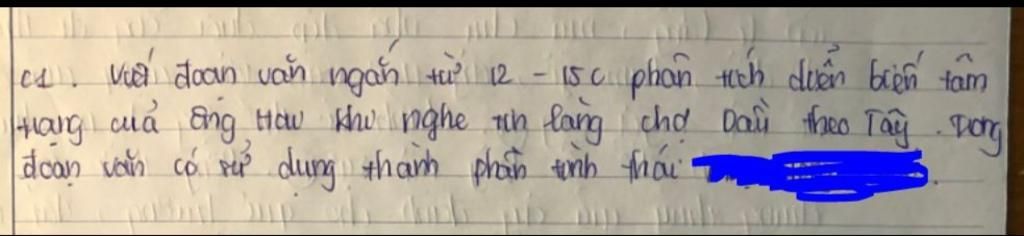 C1. Viết đoạn văn ngắn từ 12 - 15 c phân tích diễn biến tâm
trạng của ông Hai khi nghe tin làng chợ Dầu theo Tây. Trong
đoạn văn có sử dụng thành phần tình thái